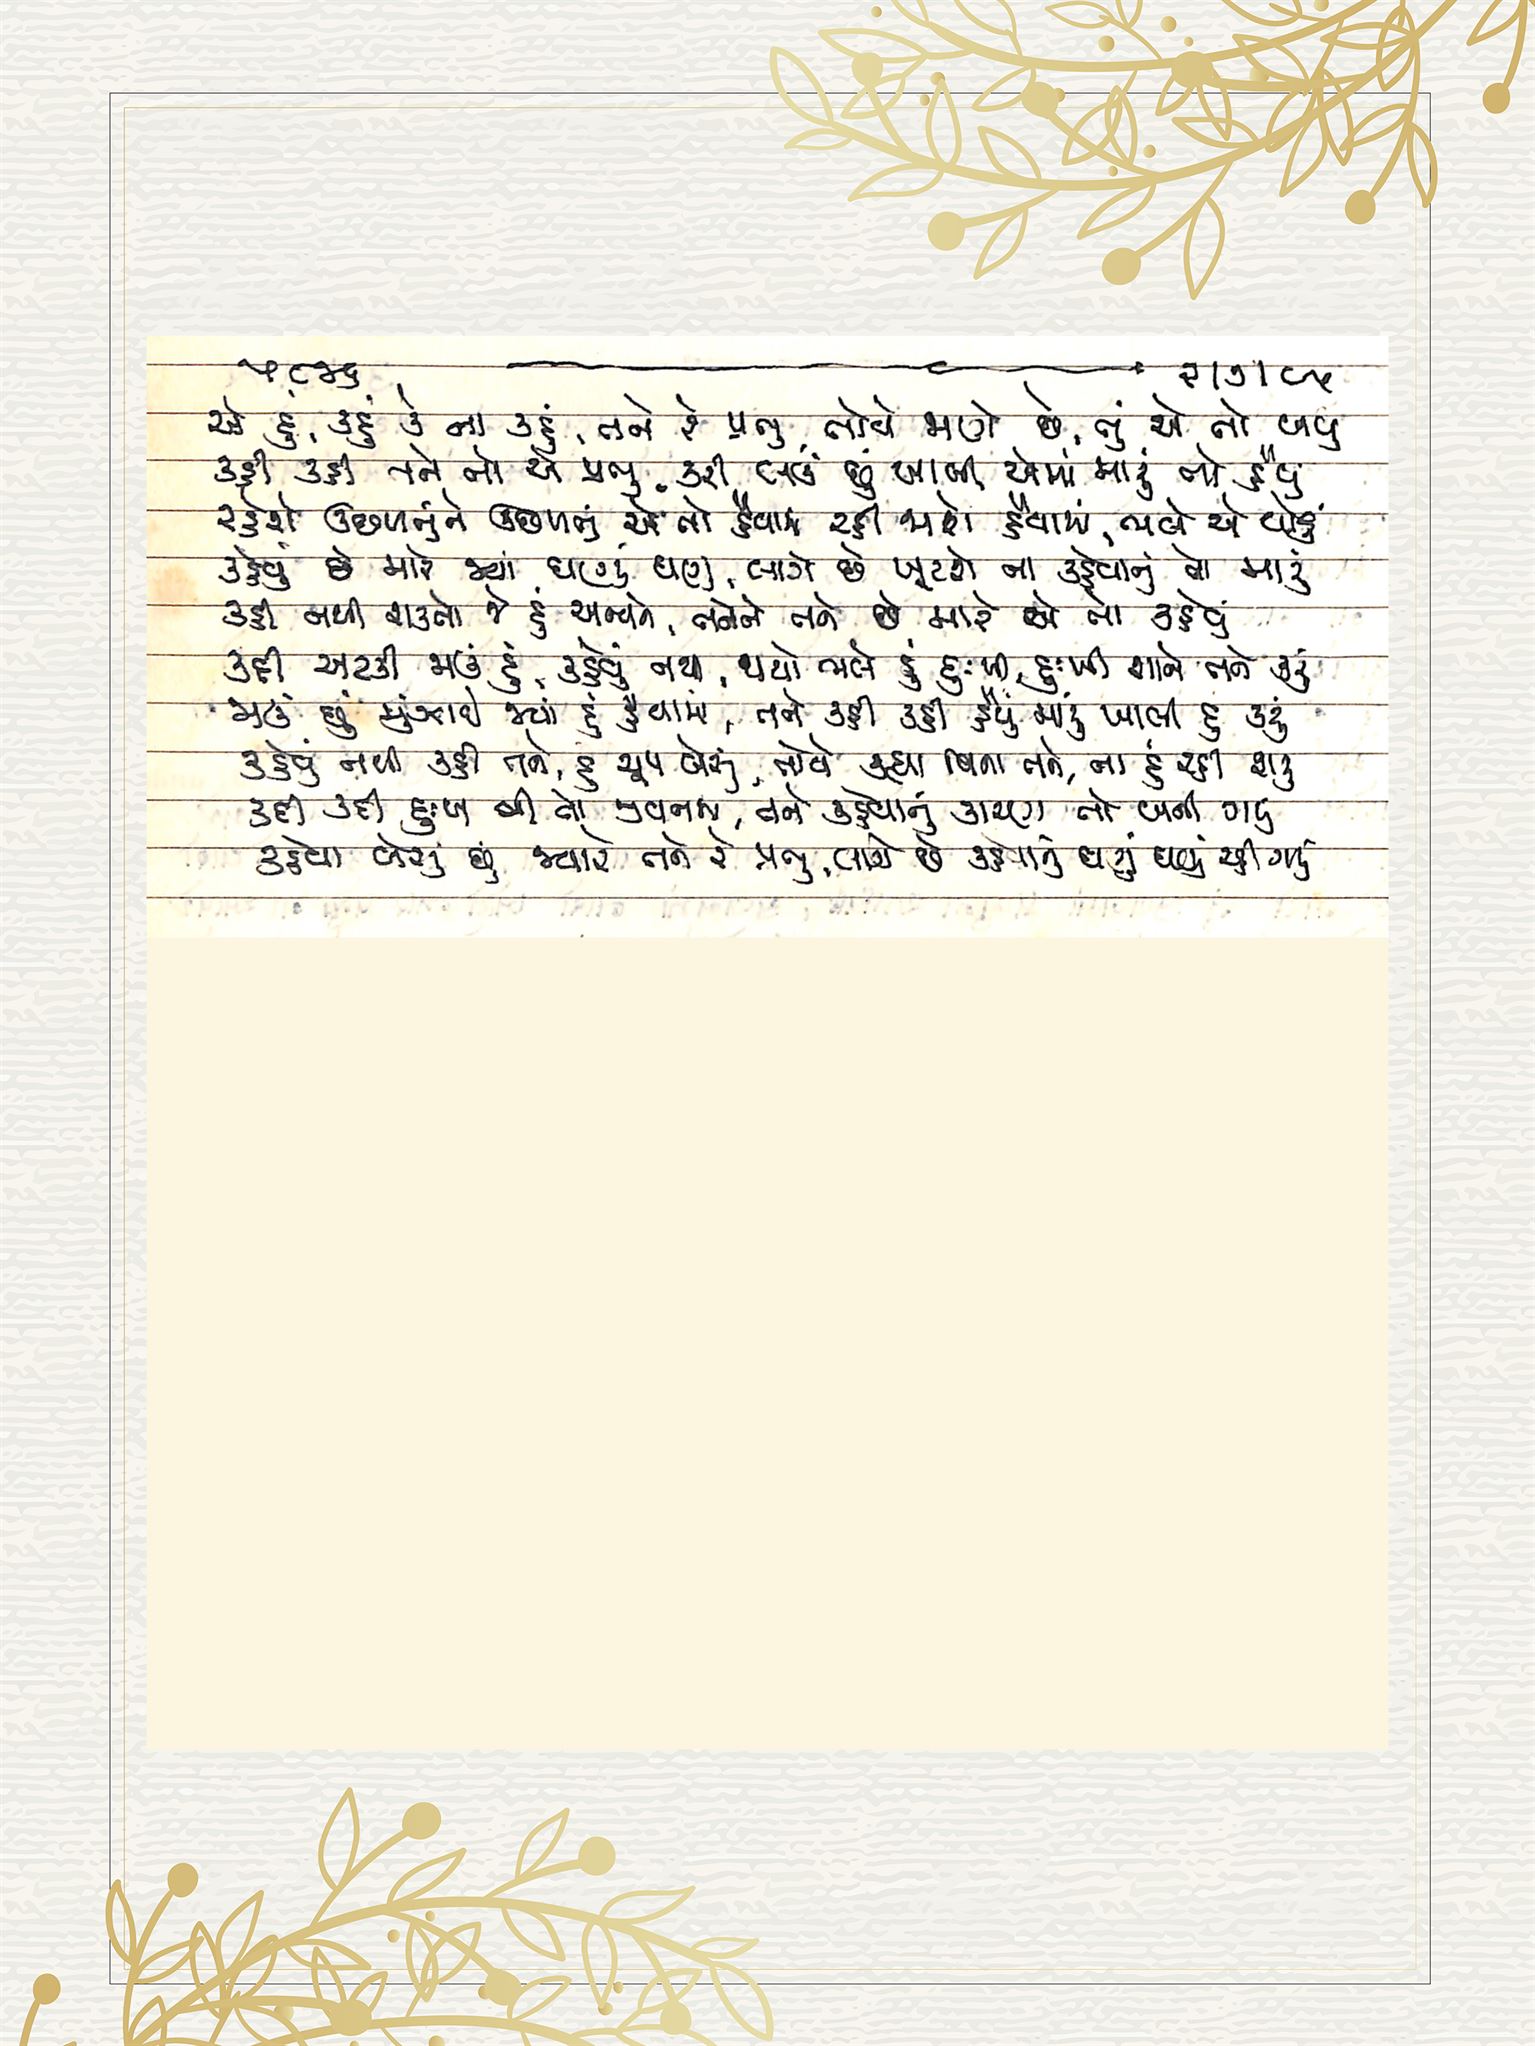 ૫૮૪૬ ૨।૭।૯૫
એ હું, કહું કે ના કહું, તને રે પ્રભુ, તોયે જાણે છે, તું એ તો બધું
કહી કહી તને તો એ પ્રભુ, કરી લઉં છું ખાલી એમાં મારું તો હૈયું
રહેશે ઉછળતુંને ઉછળતું એ તો હૈયામાં રહી જાશે હૈયામાં, ભલે એ થોડું
કહેવું છે મારે જ્યાં ઘણું ઘણું, લાગે છે ખૂટશે ના કહેવાનું તો મારું
કહી નથી શકતો જે હું અન્યને, તનેને તને છે મારે એ તો કહેવું
કહી અટકી જાઉં હું, કહેવું નથી, થયો ભલે હું દુઃખી, દુઃખી શાને તને કરું
જાઉં છું મુંઝાયે જ્યાં હું હૈયામાં, તને કહી કહી હૈયું મારું ખાલી હું કરું
કહેવું નથી કહી તને, હું ચૂપ બેસું, તોયે કહ્યા વિના તને, ના હું રહી શકું
કહી કહી દુઃખ બી તો જીવનમાં, તને કહેવાનું કારણ તો બની ગયું
કહેવા બેસું છું જ્યારે તને રે પ્રભુ, લાગે છે કહેવાનું ઘણું ઘણું રહી ગયું